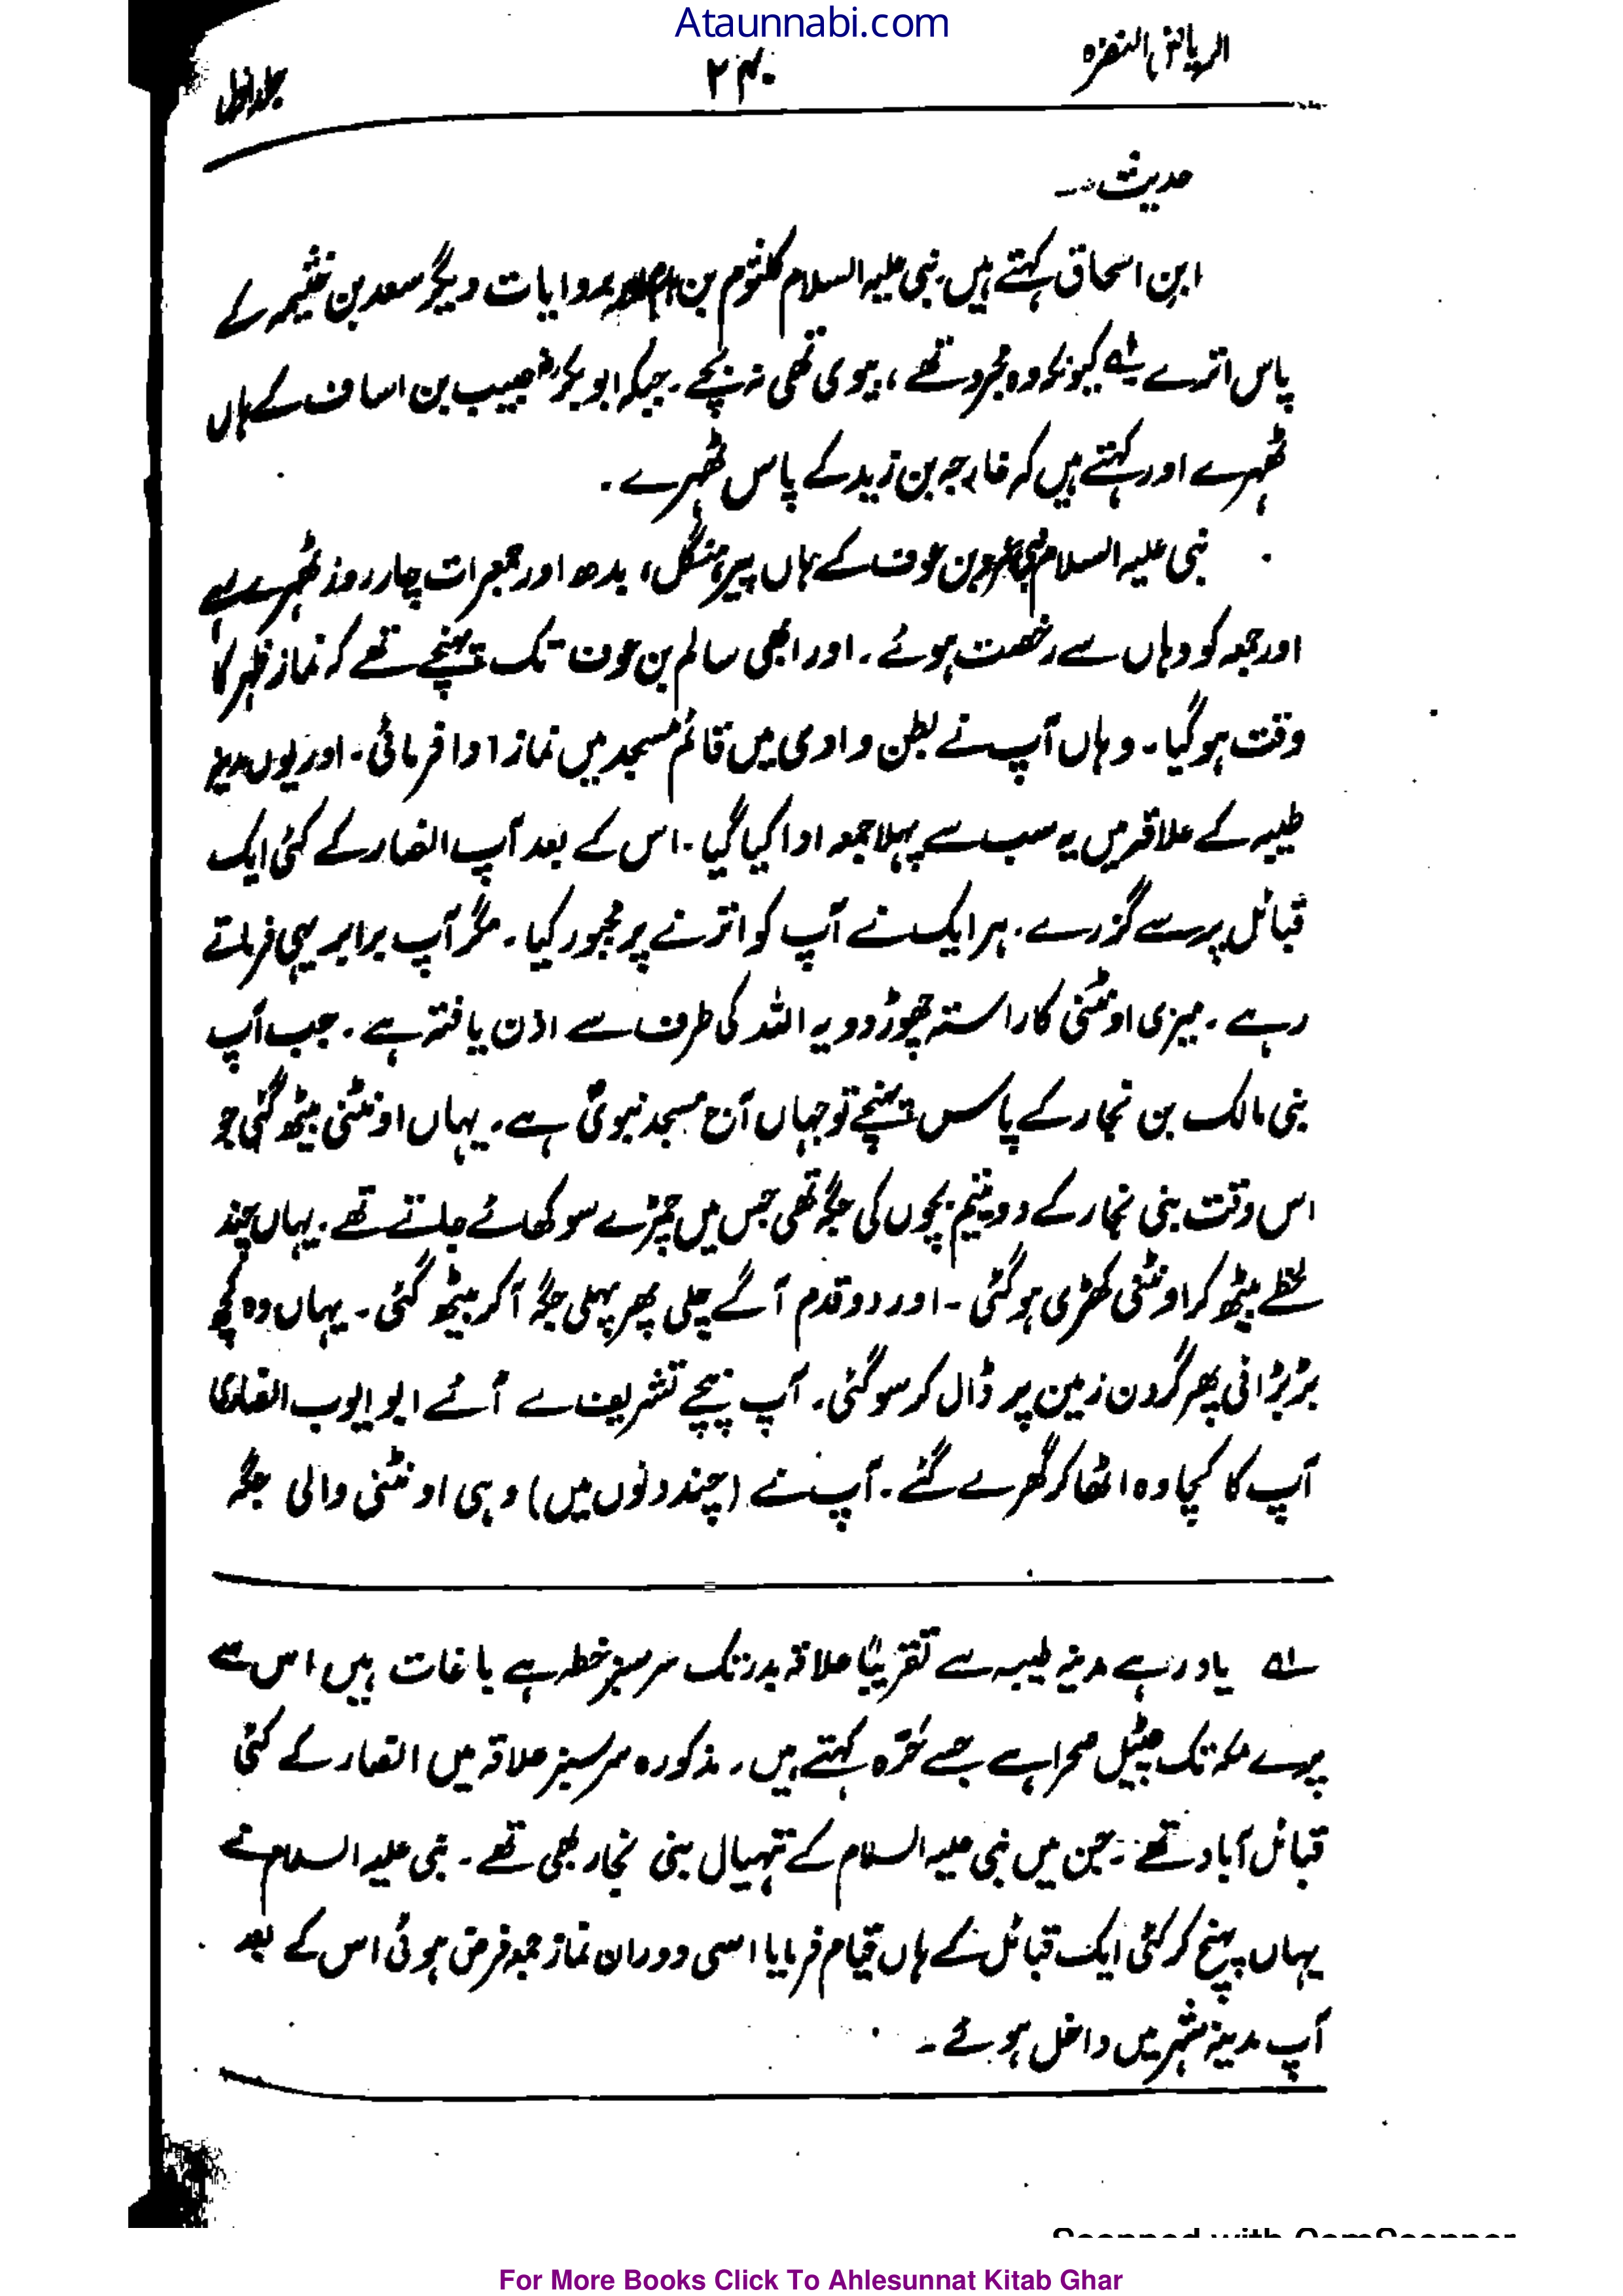 Ataunnabi.com
الریاض النضرہ
۲۴۰
جلد اول
حدیث ۔۔
ابن اسحاق کہتے ہیں نبی علیہ السلام کلثوم بن بروایات دیگر سعد بن خثیمہ کے
پاس اترے لہ کیونکہ وہ مجرد تھے، بیوی تھی نہ بچے۔ جبکہ ابوبکرؓ خبیب بن اساف کے ہاں
ٹھہرے اور کہتے ہیں کہ خارجہ بن زید کے پاس ٹھہرے۔
نبی علیہ السلام بن عوف کے ہاں پیر، منگل، بدھ اور جمعرات چار روز ٹھہرے رہے
اور جمعہ کو وہاں سے رخصت ہوئے۔ اور ابھی سالم بن عوف تک پہنچے تھے کہ نماز ظہر کا
وقت ہوگیا۔ وہاں آپ نے بطن وادی میں قائم مسجد میں نماز ادا فرمائی۔ اور یوں مدینہ
طیبہ کے علاقہ میں یہ سب سے پہلا جمعہ ادا کیا گیا۔ اس کے بعد آپ انصار کے کئی ایک
قبائل پر سے گزرے۔ ہر ایک نے آپ کو اترنے پر مجبور کیا۔ مگر آپ برابر یہی فرماتے
رہے۔ میری اونٹنی کا راستہ چھوڑ دو یہ اللہ کی طرف سے اذن یافتہ ہے۔ جب آپ
بنی مالک بن نجار کے پاس پہنچے تو جہاں آج مسجد نبویؐ ہے۔ یہاں اونٹنی بیٹھ گئی جو
اس وقت بنی نجار کے دو یتیم بچوں کی جگہ تھی جس میں چمڑے سوکھائے جاتے تھے۔ یہاں چند
لحظے بیٹھ کر اونٹنی کھڑی ہوگئی۔ اور دو قدم آگے چلی پھر پہلی جگہ آکر بیٹھ گئی۔ یہاں وہ کچھ
بڑبڑائی پھر گردن زمین پر ڈال کر سوگئی۔ آپ نیچے تشریف لے آئے ابو ایوب انصاری
آپ کا کچاوہ اٹھا کر گھر لے گئے۔ آپ نے (چند دنوں میں) وہی اونٹنی والی جگہ
لہ یاد رہے مدینہ طیبہ سے تقریباً علاقہ بدر تک سرسبز خطہ ہے باغات ہیں اس سے
پرے مکہ تک چٹیل صحرا ہے جسے حَرّہ کہتے ہیں۔ مذکورہ سرسبز علاقہ میں انصار کے کئی
قبائل آباد تھے۔ جن میں نبی علیہ السلام کے ننہیال بنی نجار بھی تھے۔ نبی علیہ السلام نے
یہاں پہنچ کر کئی ایک قبائل کے ہاں قیام فرمایا اسی دوران نماز جمعہ فرض ہوئی اس کے بعد
آپ مدینہ شہر میں داخل ہوئے۔
Scanned with CamScanner
For More Books Click To Ahlesunnat Kitab Ghar